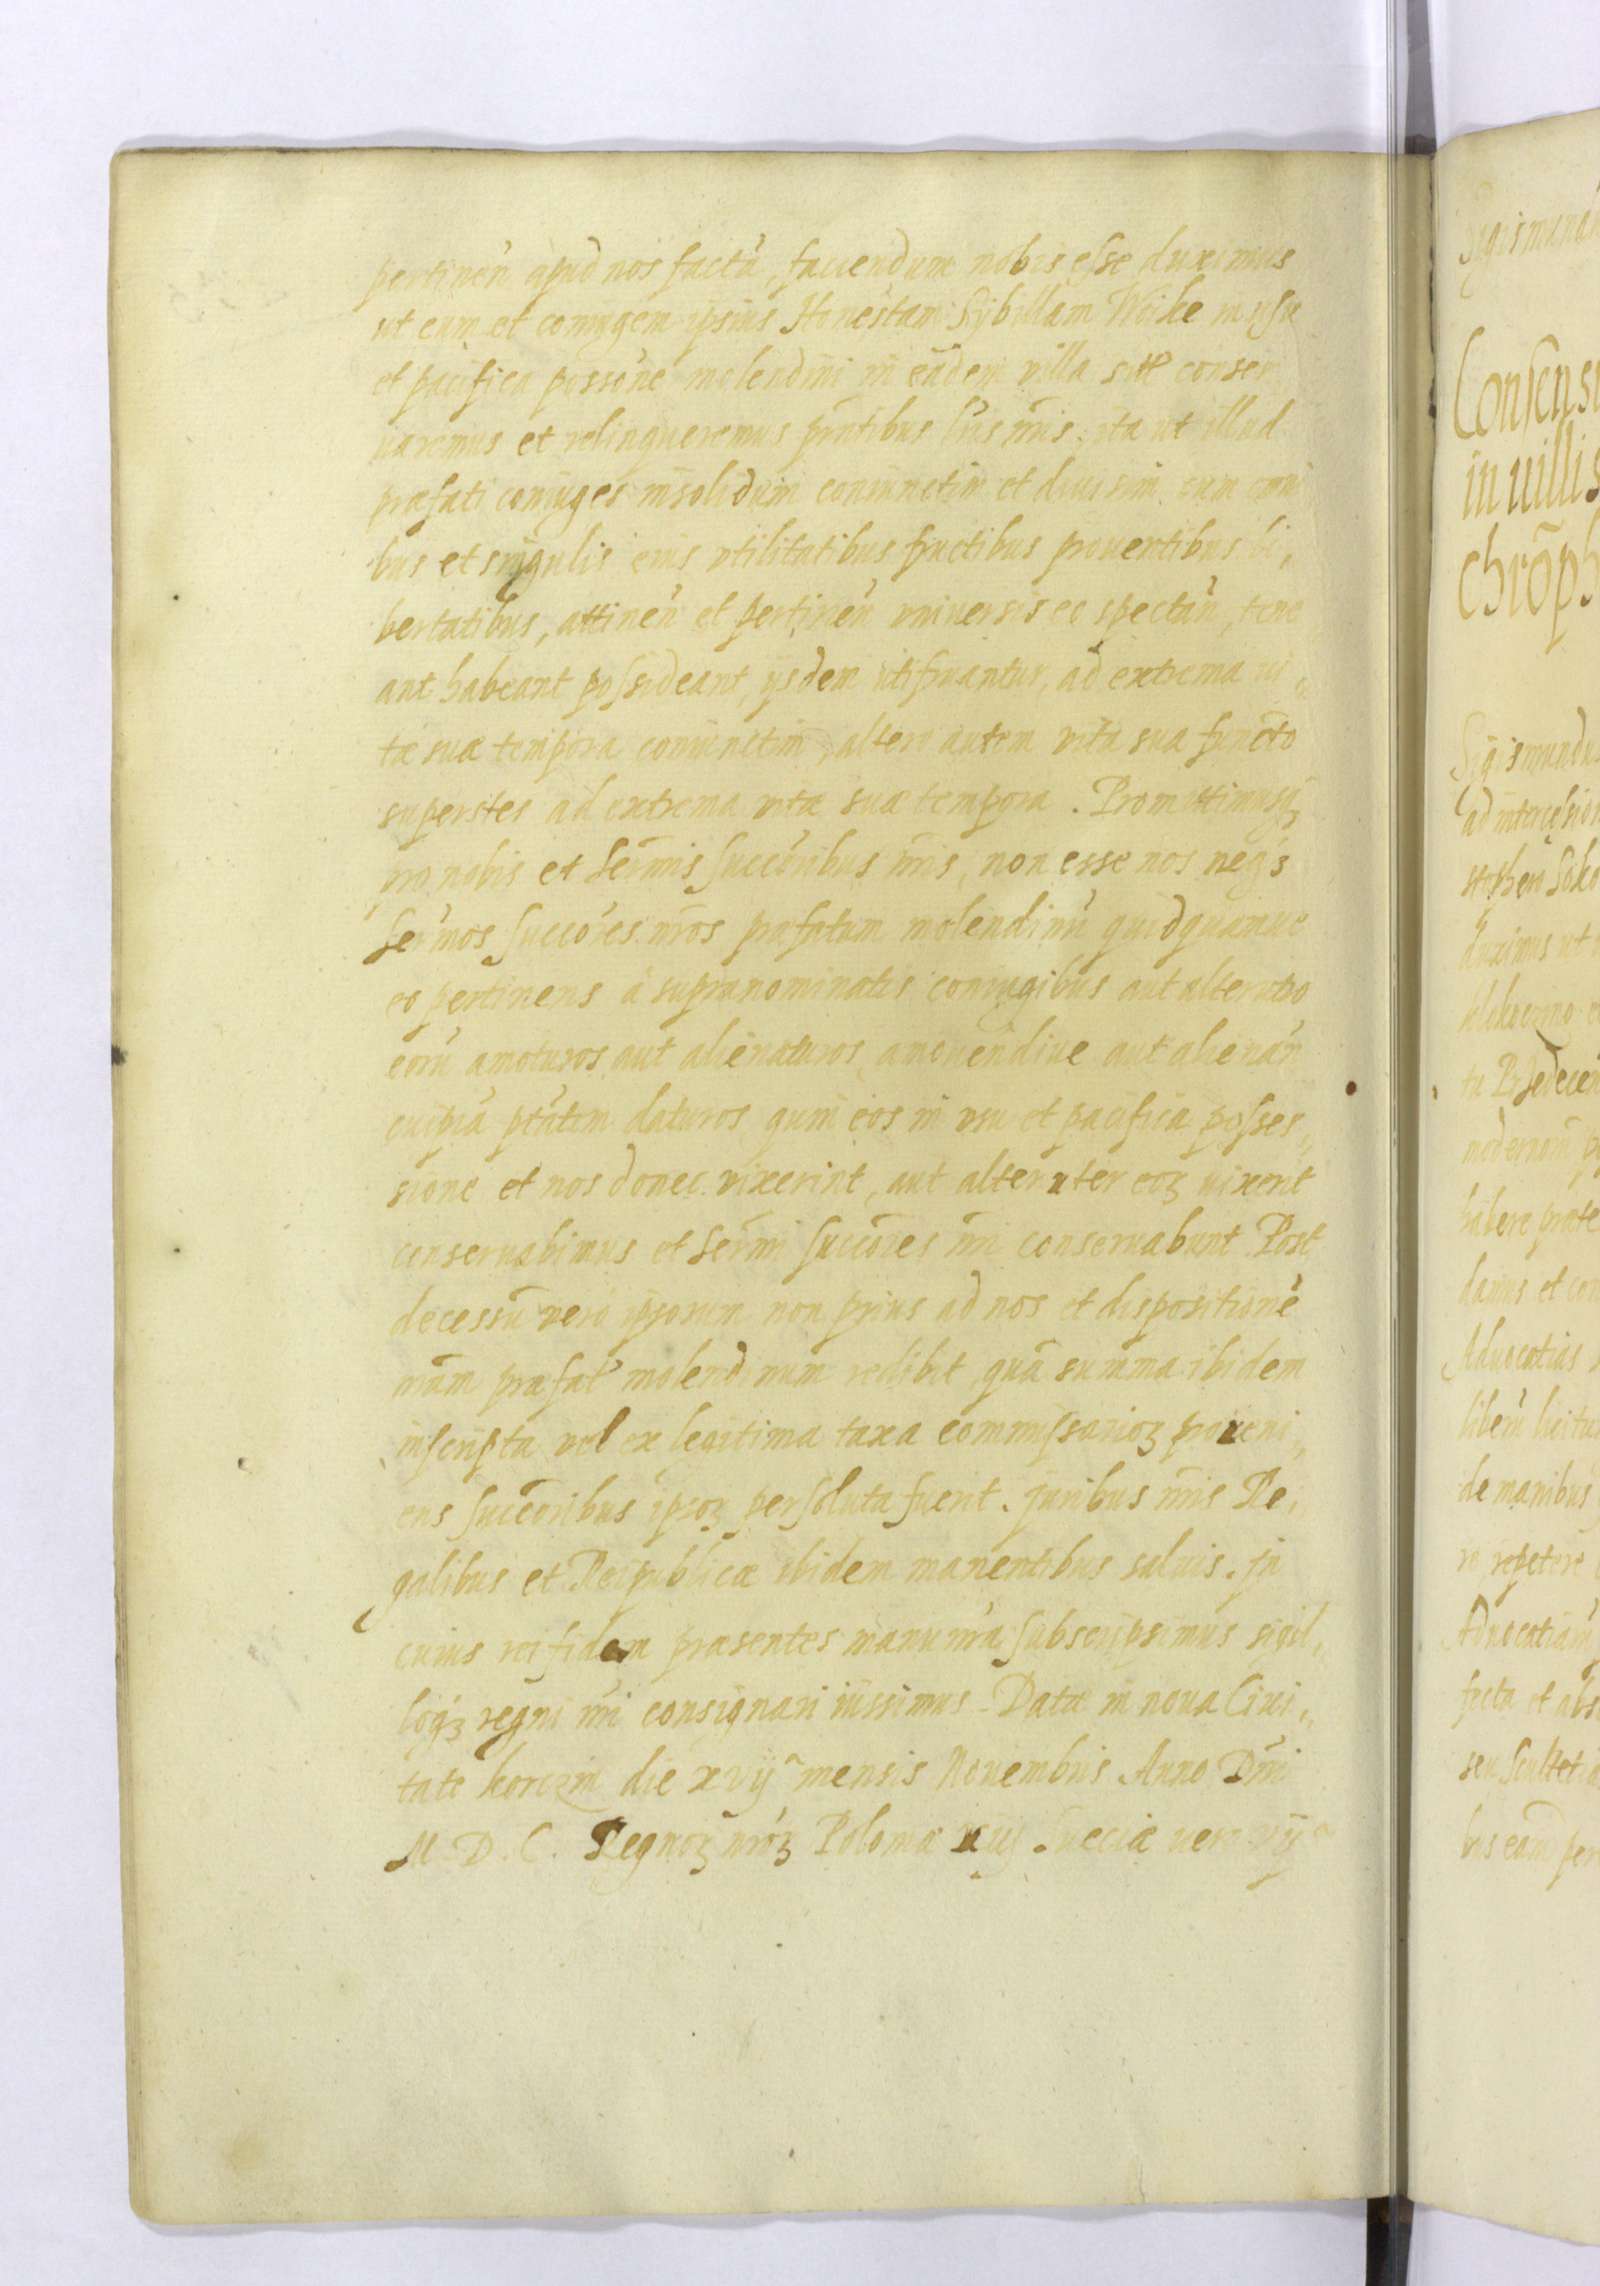 pertineñ apud nos factū, faciendum nobis esse duximus
ut eum et coniugem ipsius Honestam Sÿbillam Woike in usu
et pacifica possōne molendini in eadem villa siti conser
uaremus et relinqueremus pñtibus l̃ris nr̃is. ita ut illud
præfati coniuges insolidum coniunctim et diuisim cum omni
bus et singulis eius vtilitatibus fructibus prouentibus li,
bertatibus, attineñ et pertineñ vniuersis eo spectañ, tene
ant habeant possideant, ijsdem utifruantur, ad extrema ui„
tæ suæ tempora coniunctim, altero autem vita sua functo
superstes ad extrema vitæ suæ tempora. Promittimusqꝫ
pro nobis et Serm̃is Succōribus nr̃is, non esse nos neqꝫ
Serm̃os Succōres nr̃os præfatum molendinū quidquamue
eo pertinens à supranominatis coniugibus aut alterutro
eorū amoturos aut alienaturos, amouendiue aut alienañ
cuipiā ptātem daturos, quin eos in vsu et pacifica posses„
sione et nos donec vixerint, aut alteruter eoꝝ uixerit
conseruabimus et Serm̃i Succōres nr̃i conseruabunt Post
decessū vero ipsorum non prius ad nos et dispositionē
nr̃am præfat molendinum redibit quā summa ibidem
inscripta vel ex legitima taxa commissarioꝝ proueni„
ens succōribus ipsoꝝ persoluta fuerit. juribus nr̃is Re,
galibus et Reipublicæ ibidem manentibus saluis. Jn
cuius rei fidem præsentes manu nr̃a subscripsimus sigil,
loqꝫ regni nr̃i consignari iussimus. Datæ in noua Ciui„
tate korczin die xvij mensis Nouembris Anno Dñi
M. D. C. Regnoꝝ nr̃oꝝ Poloniæ xiij Sueciæ uero vij

Sigismund
Consensu
in uillis
chrõph
Sigismundus
ad intercession
stophero Soko
duximus ut
tu Prædecen
modernum
habere præte
damus et con
Aduocatias
de manibus
ro repetere
Aduocatiam
seu Scultetia
bus eam per